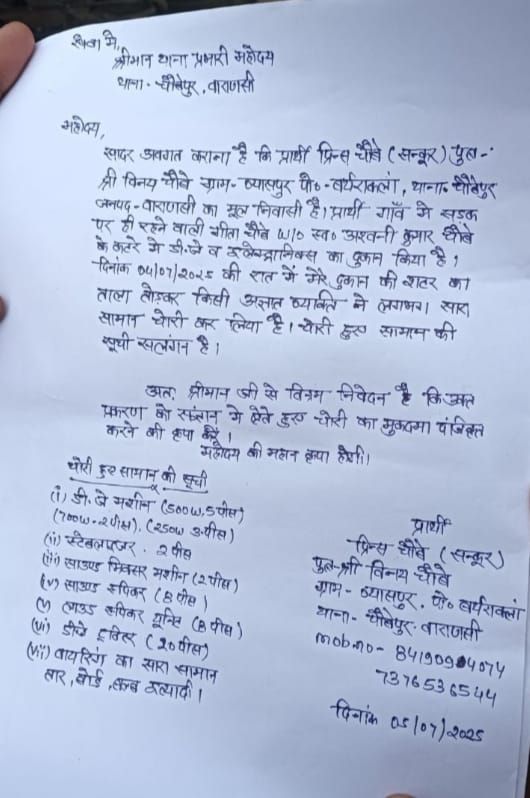 सेवा मे,
श्रीमान थाना प्रभारी महोदय
थाना- चौबेपुर, वाराणसी
महोदय,
सादर अवगत कराना है कि प्रार्थी प्रिन्स चौबे (सन्कूर) पुत्र-
श्री विनय चौबे ग्राम- व्यासपुर पो०- बर्थराकलां, थाना- चौबेपुर
जनपद- वाराणसी का मूल निवासी है। प्रार्थी गाँव मे सड़क
पर ही रहने वाली गीता चौबे W/O स्व० अश्वनी कुमार चौबे
के कटरे मे डी.जे व इलेक्ट्रानिक्स का दुकान किया है।
दिनांक 04/07/2025 की रात में मेरे दुकान की शटर का
ताला तोड़कर किसी अज्ञात व्यक्ति ने लगभग सारा
सामान चोरी कर लिया है। चोरी हुए सामान की
सूची सलंगन है।
अतः श्रीमान जी से विनम्र निवेदन है कि उक्त
प्रकरण को संज्ञान मे लेते हुए चोरी का मुकदमा पंजिकृत
करने की कृपा करें।
महोदय की महान कृपा होगी।
चोरी हुए सामान की सूची
(i) डी.जे मशीन (500W,5 पीस)
(700W-2पीस), (250W 3-पीस)
(ii) स्टेबलाइजर - 2 पीस
(iii) साउण्ड मिक्सर मशीन (2 पीस)
(iv) साउण्ड स्पिकर (8 पीस)
(v) लाउड स्पिकर यूनिट (8 पीस)
(vi) डीजे ट्विटर (20 पीस)
(vii) वायरिंग का सारा सामान
तार, बोर्ड, बल्ब इत्यादी।
प्रार्थी
प्रिन्स चौबे (सन्कूर)
पुत्र-श्री विनय चौबे
ग्राम - व्यासपुर, पो० बर्थराकलां
थाना- चौबेपुर- वाराणसी
mob.no- 8419094074
7376536544
दिनांक 05/07/2025